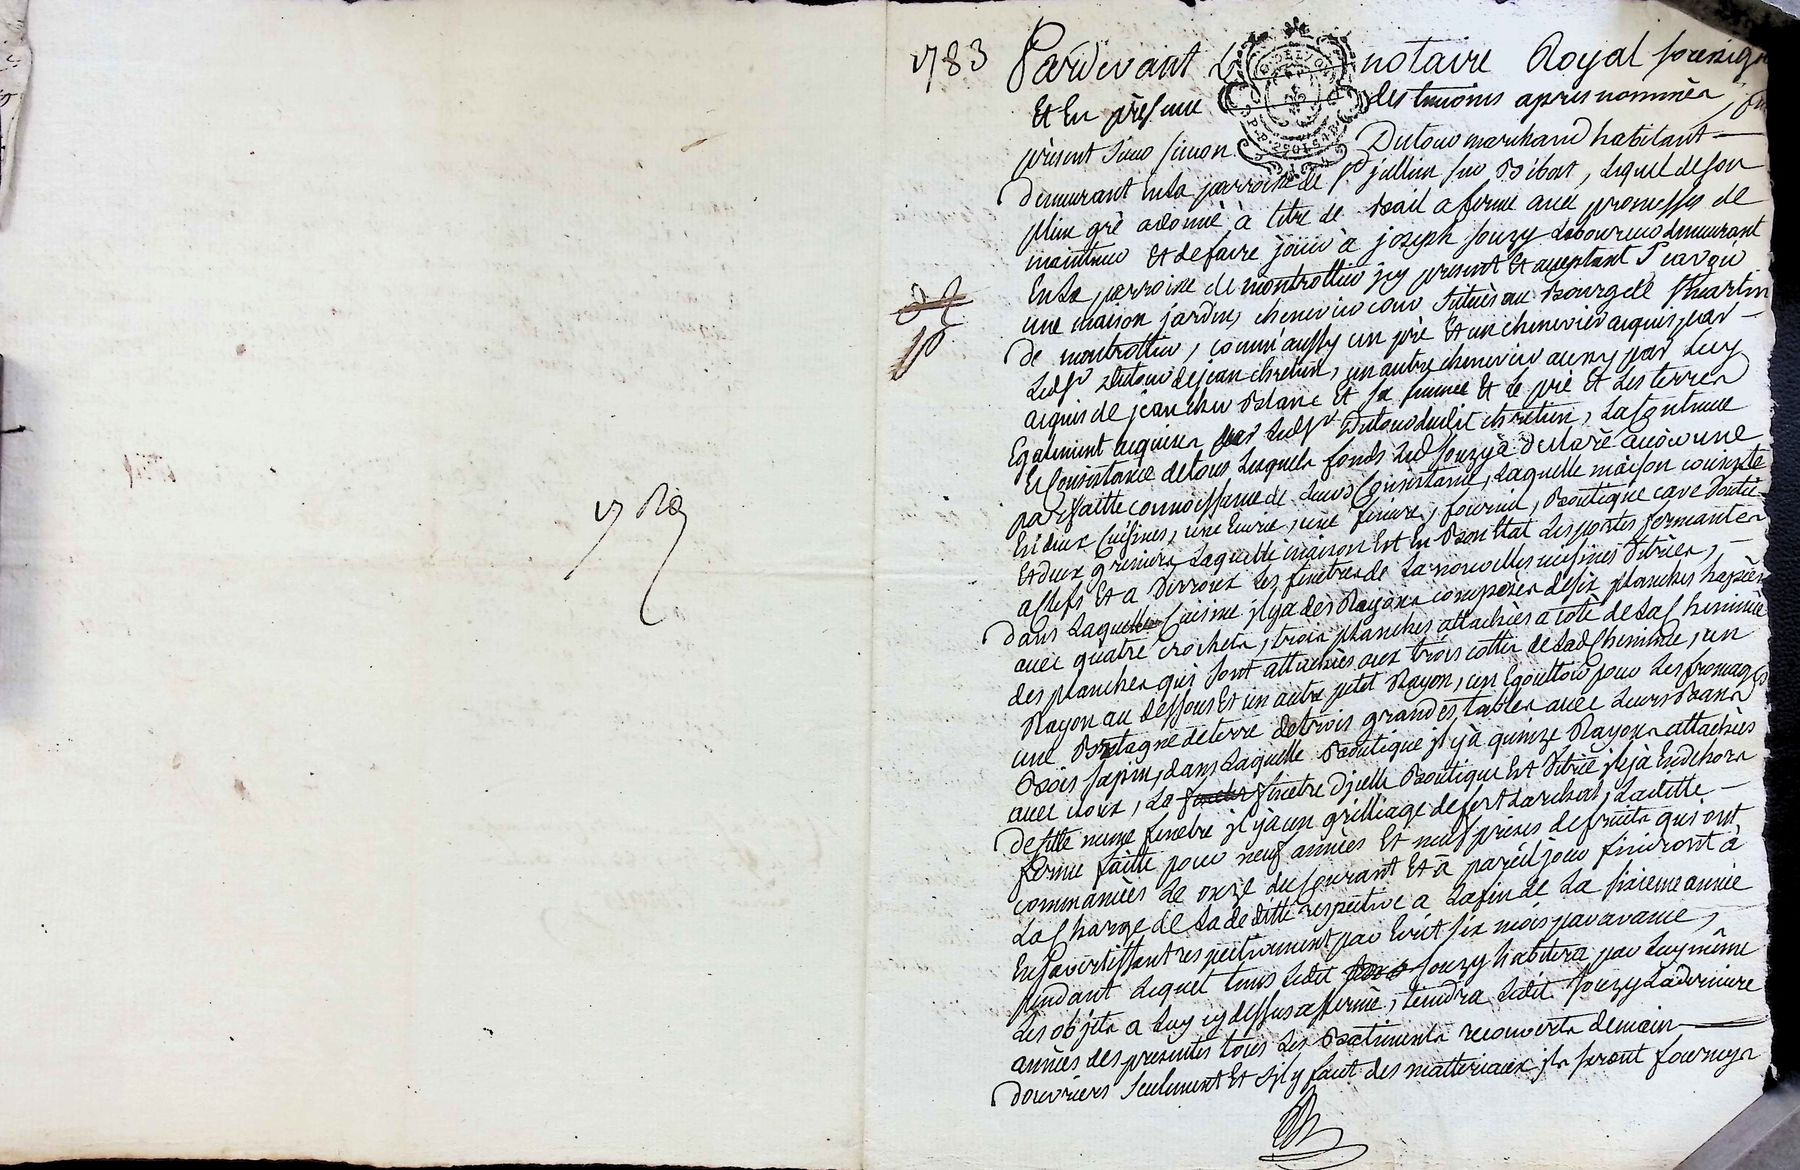 1783
Pardevant Le notaire Royal soussigné
Et En présence des temoins apres nommés, fut
présent sieur simon Dutour marchand habitant
Demeurant En la parroisse de st jullien sur Bibost, Lequel de son
plein gré a donné à titre de Bail a ferme avec promesses de
maintenir Et de faire jouir à joseph souzy Laboureur demeurant
En la parroisse de montrottier icy present Et acceptant
une maison jardin, chenevier cour situés au Bourg de st martin
de montrottier, comm'aussy un pré Et un chenevier acquis par
Ledsr Dutour de jean chretien, un autre chenevier aussy par Luy
acquis de jean Blanc Et sa femme Et le pré Et Les terres
Egalement acquises par Ledsr Dutour dudit chretien, La Contenue
Et Consistance de tous Lesquels fonds Led souzy à declaré avoir une
parffaitte connoissance de Leurs Consistance, Laquelle maison consiste
En deux Cuisines, une Ecurie, une feniere, fournil, Boutique cave voutée
Et deux greniers Laquelle maison Est En Bon Etat Les portes fermantes
a clefs Et a Verroux Les fenetres de La nouvelles cuisines Vitrées,
dans Laquelle Cuisine il ya des Rayons composés de six planches
avec quatre crochets, trois planches attachées a coté de La Cheminée
des planches qui sont attachées aux trois cottés de Lad Cheminée, un
Rayon au dessous Et un autre petit Rayon, un Egouttoir pour Les fromages
une Bretagne de terre de trois grandes tables avec Leurs Bancs
Bois sapin, dans Laquelle Boutique il y à quinze Rayons attachés
avec cloux, La fenetre D'jcelle Boutique Est Vitrée il yà En dehors
de jtte meme fenetre il y à un grilliage de fert d'archal, Laditte
ferme faitte pour neuf années Et neuf prises de fruits qui ont
commancées Le onze du Courant Et à pareil jour finiront à
La Charge de La deditte respective a La fin de La sixieme année
En s'avertissant respectivement par Ecrit six mois par avance,
pendant Lequel tems Ledit souzy habitera par Luy même
Les objets a Luy cy dessus affermé, tiendra Ledit souzy La derniere
années des presentes tous Les Batiments recouverts de main
d'ouvriers seulement Et s'il y faut des matteriaux jls seront fournys